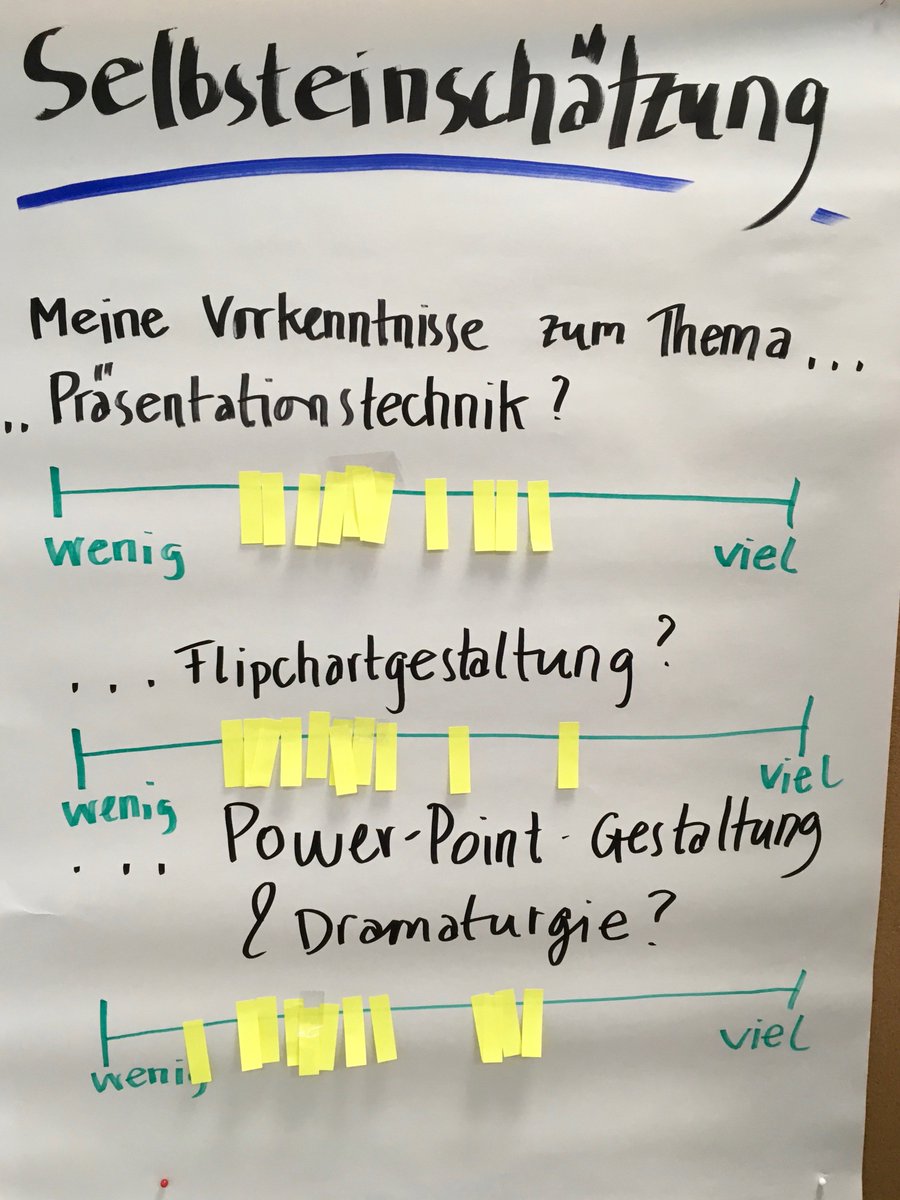 Selbsteinschätzung
Meine Vorkenntnisse zum Thema...
..Präsentationstechnik?
wenig viel
...Flipchartgestaltung?
wenig viel
... Power-Point-Gestaltung
& Dramaturgie?
wenig viel